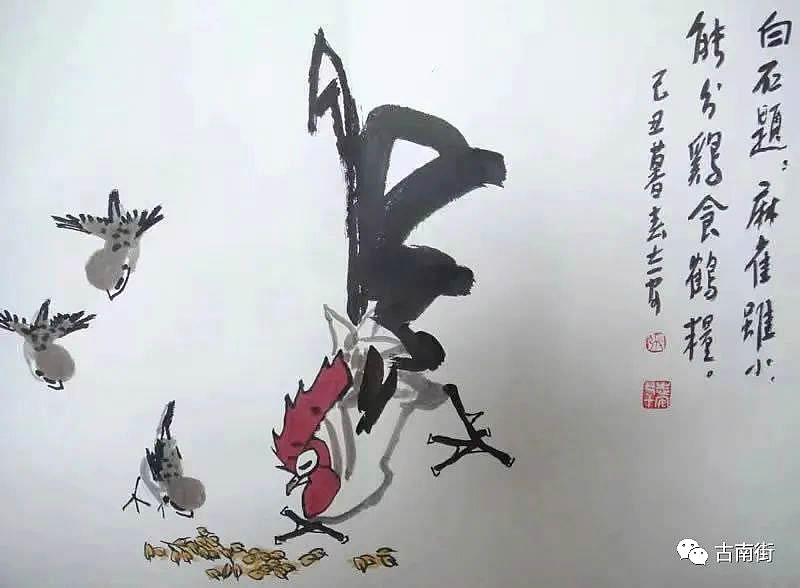 白石題：麻雀雖小，
能分鷄食鶴糧。
己丑暮春
古南街